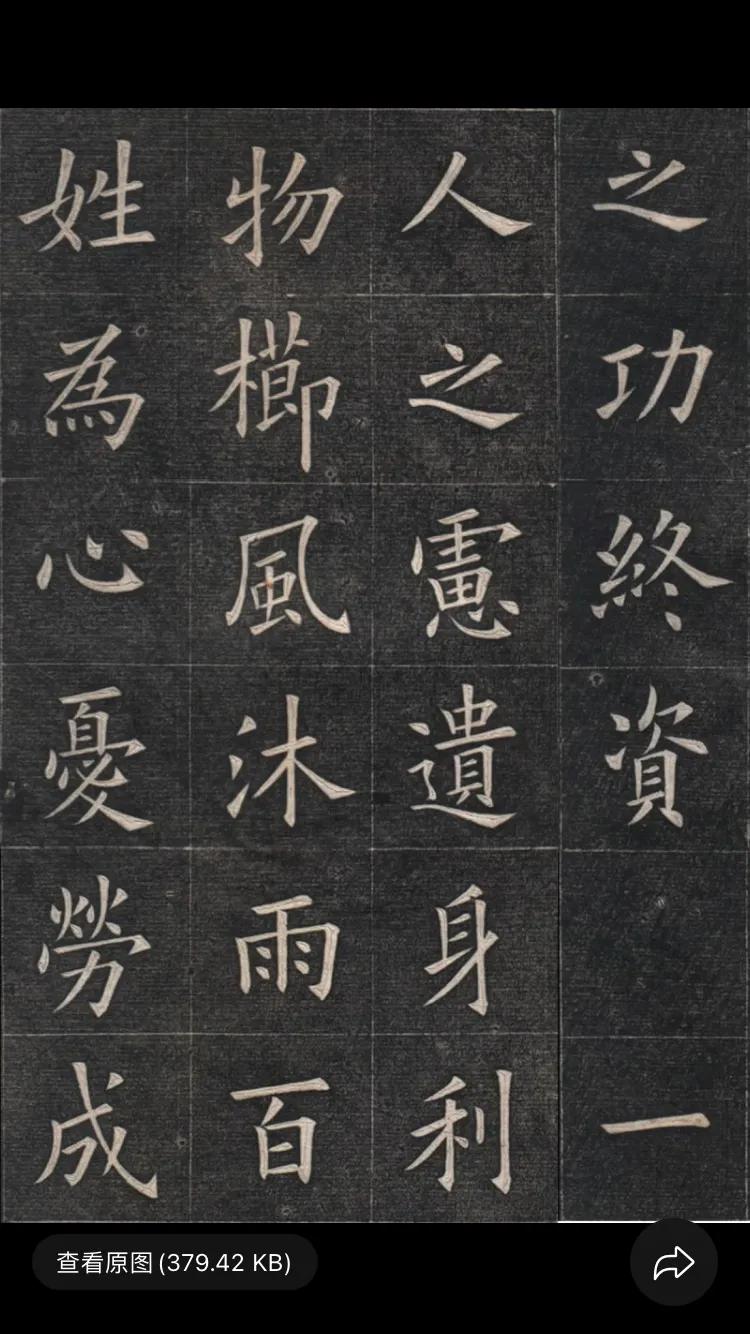 之功終資一
人之慮遺身利
物櫛風沐雨百
姓為心憂勞成
查看原图(379.42 KB)